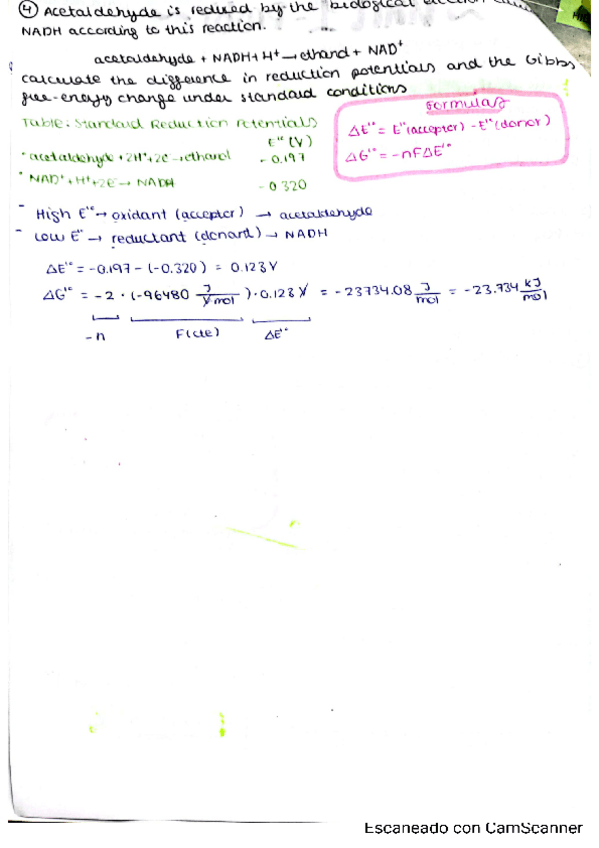 ④ Acetaldehyde is reduced by the biological electron
NADH according to this reaction.
acetaldehyde + NADH + H⁺ → ethanol + NAD⁺
calculate the difference in reduction potentials and the Gibbs
free-energy change under standard conditions
Formulas
ΔE'° = E'°(acceptor) - E'°(donor)
ΔG'° = -nFΔE'°
Table: Standard Reduction Potentials
E'° (V)
· acetaldehyde + 2H⁺ + 2e⁻ → ethanol - 0.197
· NAD⁺ + H⁺ + 2e⁻ → NADH - 0.320
- High E'° → oxidant (acceptor) → acetaldehyde
- Low E'° → reductant (donard) → NADH
ΔE'° = -0.197 - (-0.320) = 0.123 V
ΔG'° = -2 · (-96480 J/V mol) · 0.123 V = -23734.08 J/mol = -23.734 kJ/mol
-n F(cte) ΔE'°
Escaneado con CamScanner